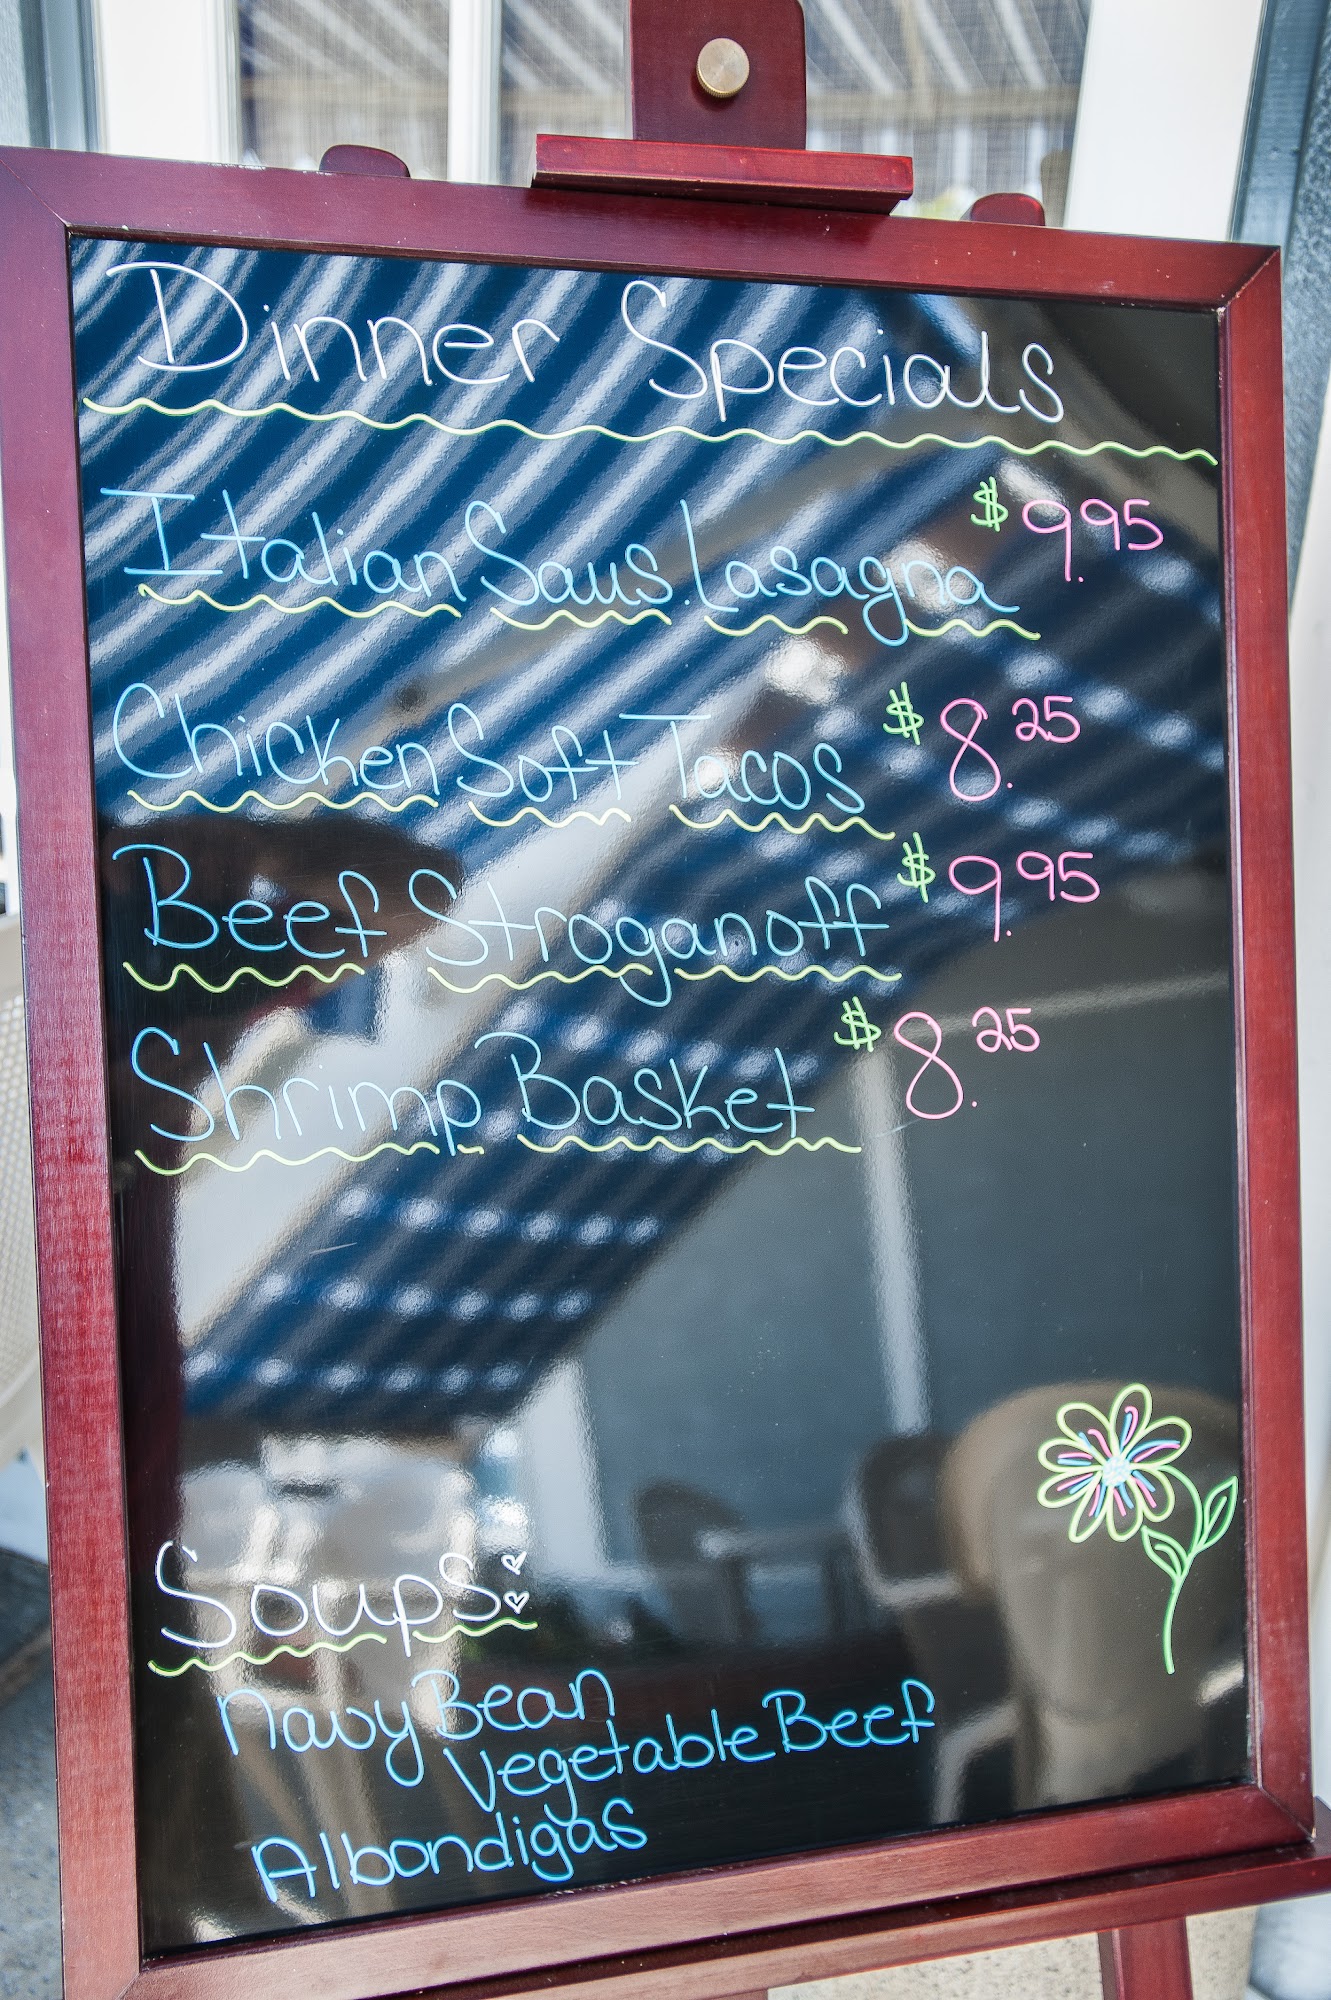 Dinner Specials
Italian Saus. Lasagna $9.95
Chicken Soft Tacos $8.25
Beef Stroganoff $9.95
Shrimp Basket $8.25
Soups:
Navy Bean
Vegetable Beef
Albondigas